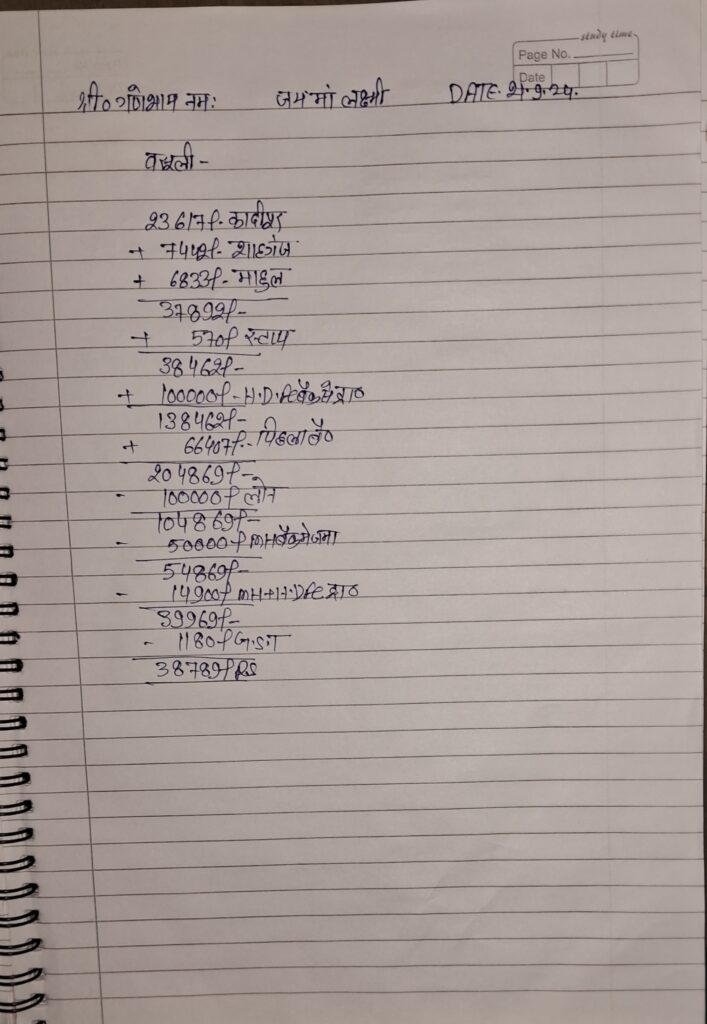 study time
Page No.
Date
श्री० गणेशाय नमः जय मां लक्ष्मी DATE. 21.9.24.
वसूली -
23617/- कादीपुर
+ 7442/- शाहगंज
+ 6833/- माहुल
37892/-
+ 570/ स्टाफ
38462/-
+ 100000/- H.D.Fc बैंक से ट्रा०
138462/-
+ 66407/- पिछला बै०
204869/-
- 100000/ लोन
104869/-
- 50000/ MH बैंक में जमा
54869/-
- 14900/ MH+H.DFC ट्रा०
39969/-
- 1180/ G.S.T
38789/ RS